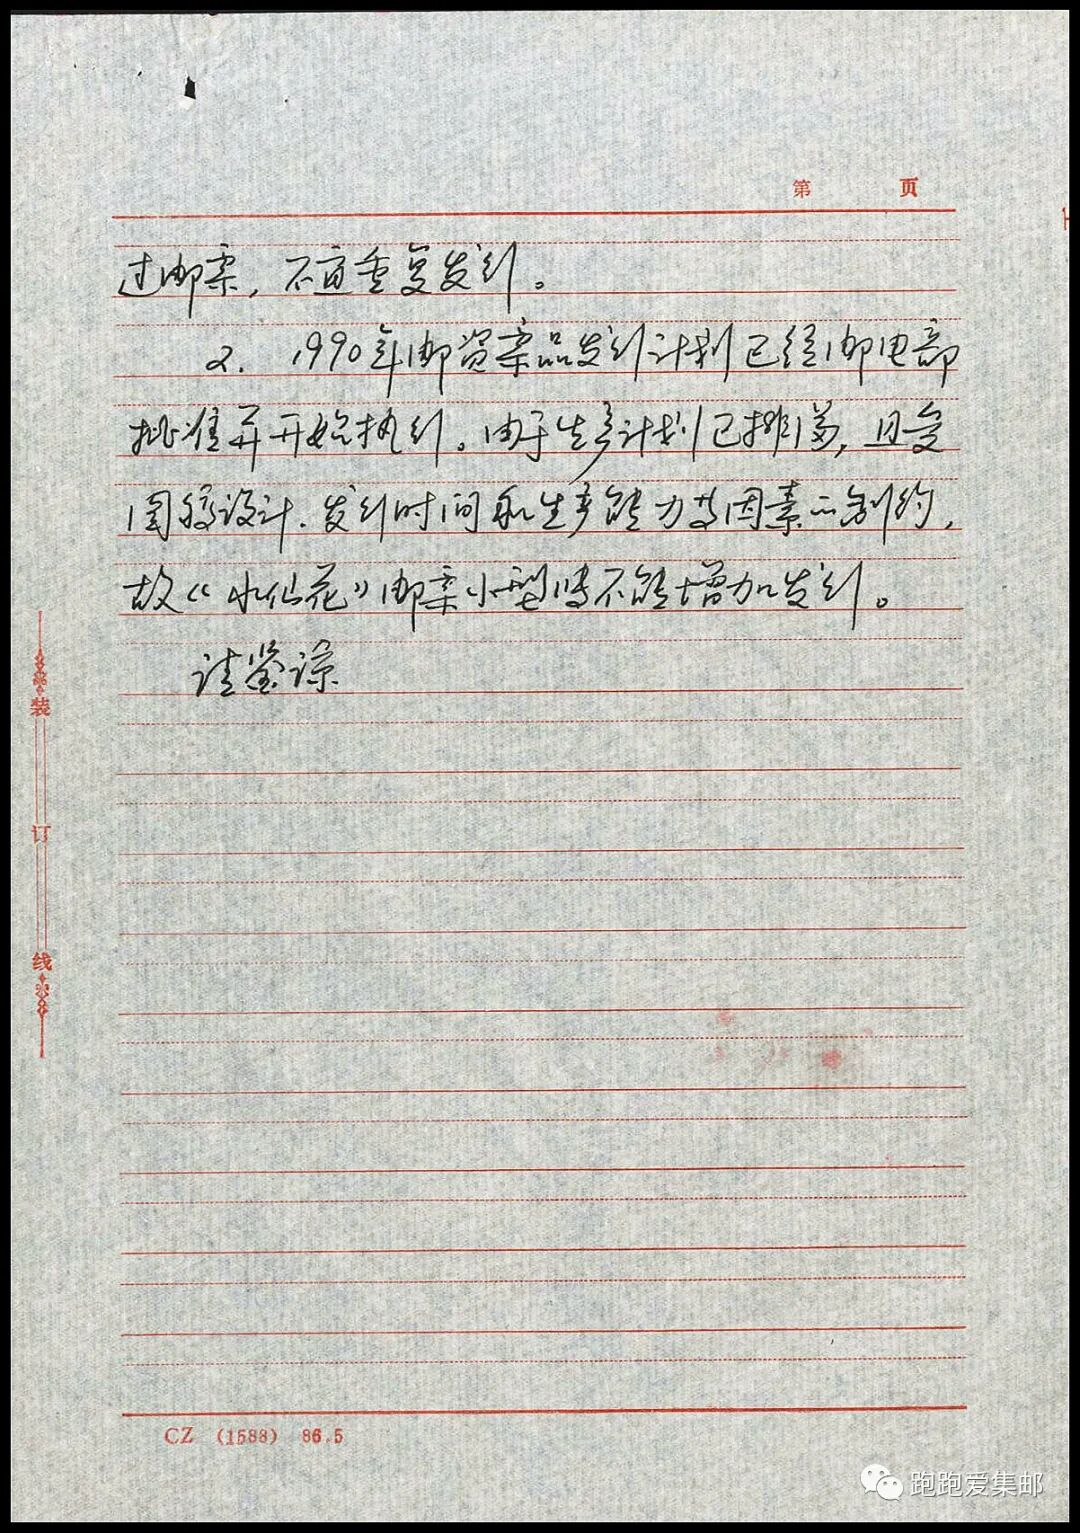 第 页
过邮票，不宜重复发行。
2. 1990年邮资票品发行计划已经邮电部
批准并开始执行。由于生产计划已排满，且受
图稿设计、发行时间和生产能力等因素的制约，
故《水仙花》邮票小型张不能增加发行。
请鉴谅
装
订
线
CZ (1588) 86.5
跑跑爱集邮